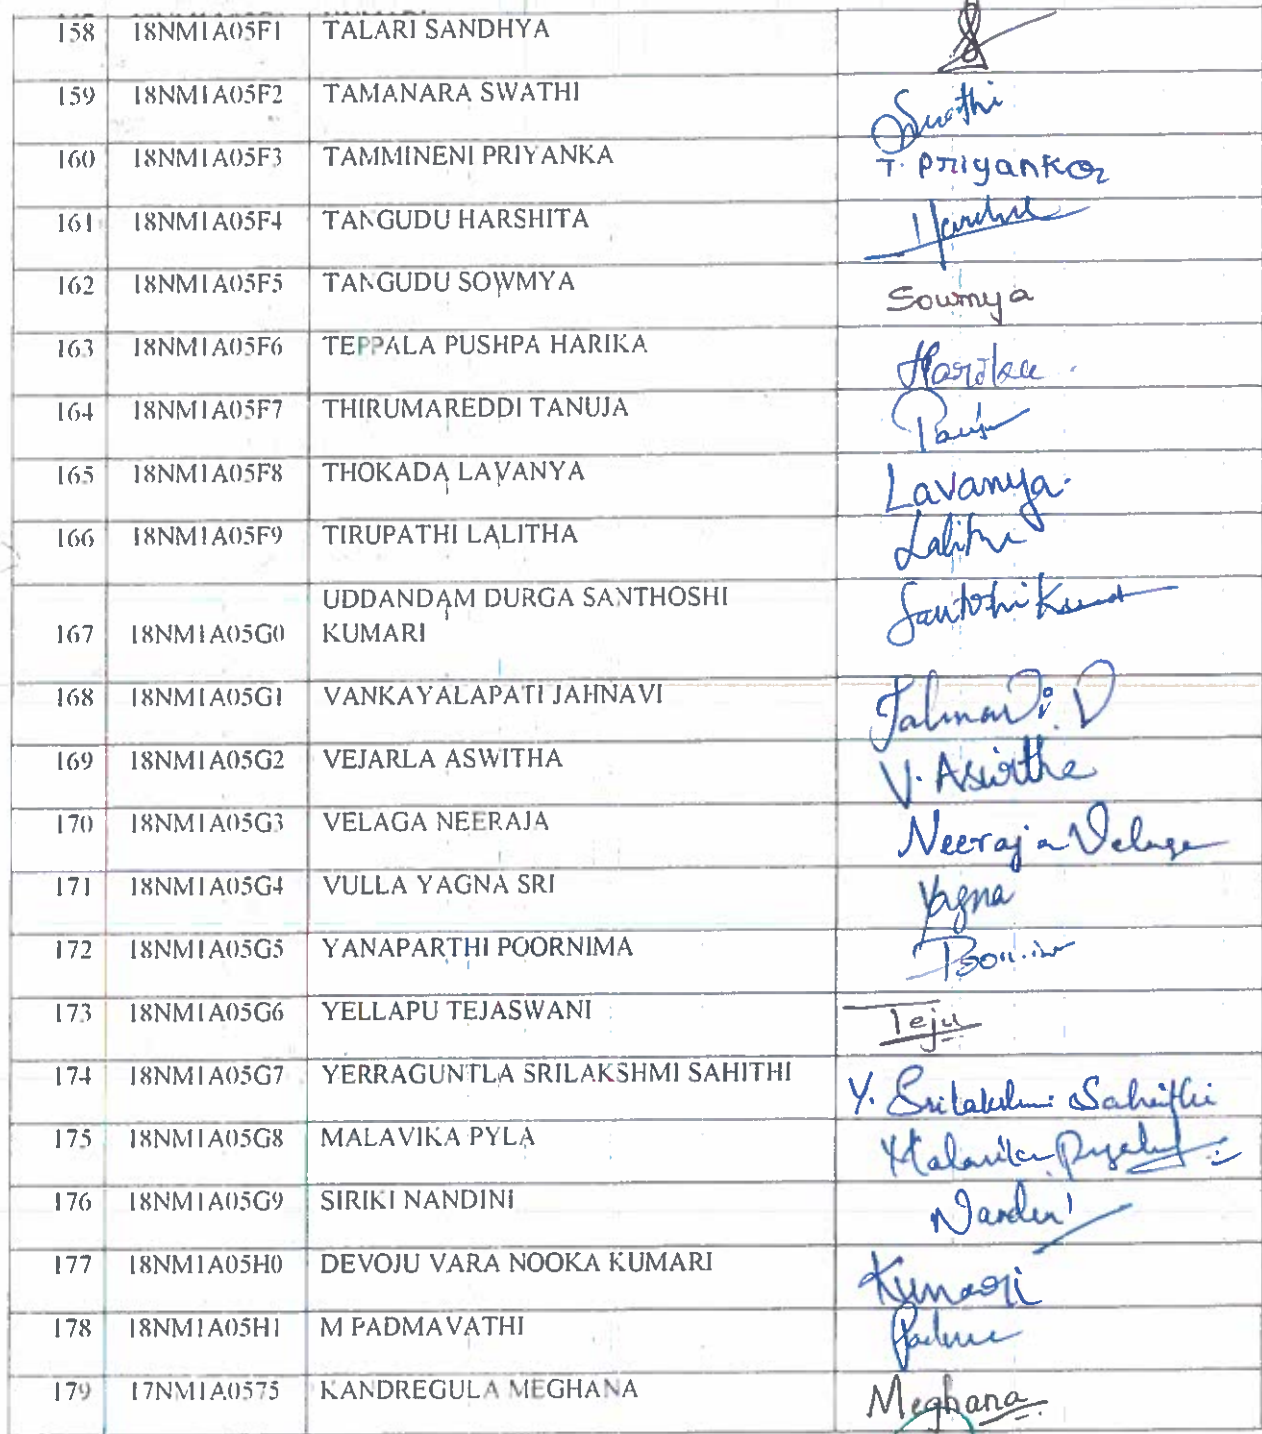 158 18NM1A05F1 TALARI SANDHYA
159 18NM1A05F2 TAMANARA SWATHI Swathi
160 18NM1A05F3 TAMMINENI PRIYANKA T. Priyanka
161 18NM1A05F4 TANGUDU HARSHITA
162 18NM1A05F5 TANGUDU SOWMYA Sowmya
163 18NM1A05F6 TEPPALA PUSHPA HARIKA Harika
164 18NM1A05F7 THIRUMAREDDI TANUJA
165 18NM1A05F8 THOKADA LAVANYA Lavanya
166 18NM1A05F9 TIRUPATHI LALITHA Lalitha
UDDANDAM DURGA SANTHOSHI
167 18NM1A05G0 KUMARI
168 18NM1A05G1 VANKAYALAPATI JAHNAVI Jahnavi. V
169 18NM1A05G2 VEJARLA ASWITHA V. Aswitha
170 18NM1A05G3 VELAGA NEERAJA Neeraja Velaga
171 18NM1A05G4 VULLA YAGNA SRI Yagna
172 18NM1A05G5 YANAPARTHI POORNIMA
173 18NM1A05G6 YELLAPU TEJASWANI Teju
174 18NM1A05G7 YERRAGUNTLA SRILAKSHMI SAHITHI Y. Srilakshmi Sahithi
175 18NM1A05G8 MALAVIKA PYLA Malavika
176 18NM1A05G9 SIRIKI NANDINI Nandini
177 18NM1A05H0 DEVOJU VARA NOOKA KUMARI Kumari
178 18NM1A05H1 M PADMAVATHI Padma
179 17NM1A0575 KANDREGULA MEGHANA Meghana